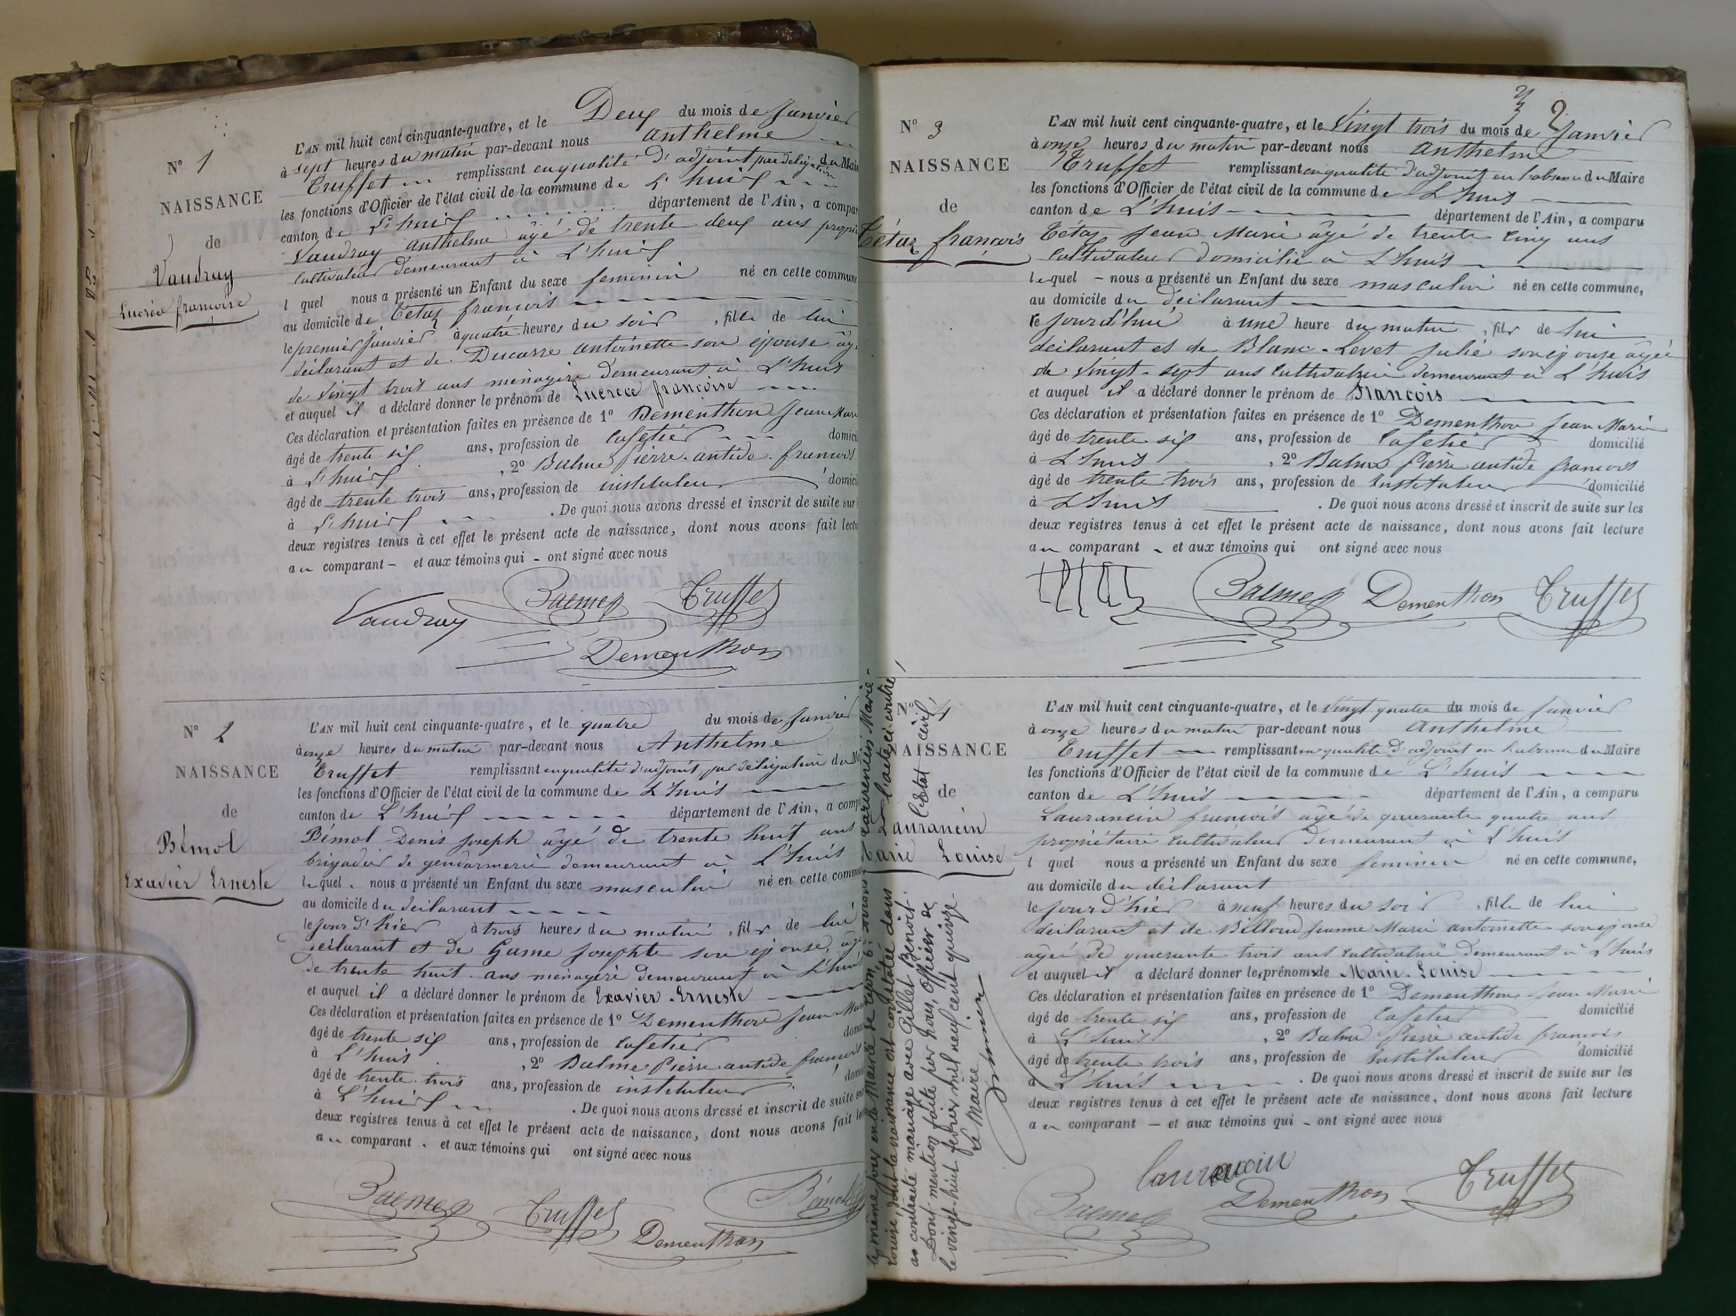 N° 1
NAISSANCE
de
Vaudray
Lucrèce françoise
L'AN mil huit cent cinquante-quatre, et le Deux du mois de Janvier
à sept heures du matin par-devant nous Anthelme
Truffet remplissant en qualité d'adjoint par délégation du Maire
les fonctions d'Officier de l'état civil de la commune de L'huis
canton de L'huis département de l'Ain, a compar
Vaudray anthelme âgé de trente deux ans propri
cultivateur demeurant à L'huis
l quel nous a présenté un Enfant du sexe feminin né en cette commune
au domicile de Tétaz françois
le premier janvier à quatre heures du soir, fille de lui
déclarant et de Ducarre antoinette son épouse âg
de vingt trois ans ménagère demeurant à L'huis
et auquel il a déclaré donner le prénom de Lucrèce françoise
Ces déclaration et présentation faites en présence de 1° Dementhon Jean Mari
âgé de trente six ans, profession de cafetier domici
à L'huis, 2° Balme Pierre antide francois
âgé de trente trois ans, profession de instituteur domici
à L'huis. De quoi nous avons dressé et inscrit de suite sur
deux registres tenus à cet effet le présent acte de naissance, dont nous avons fait lectu
au comparant et aux témoins qui ont signé avec nous
Vaudray Balme Truffet
Dementhon
N° 2
NAISSANCE
de
Bémol
Exavier Erneste
L'AN mil huit cent cinquante-quatre, et le quatre du mois de Janvier
à onze heures du matin par-devant nous Anthelme
Truffet remplissant en qualité d'adjoint par délégation du M
les fonctions d'Officier de l'état civil de la commune de L'huis
canton de L'huis département de l'Ain, a comp
Bémol Denis Joseph âgé de trente huit ans
brigadier de gendarmerie demeurant à L'huis
lequel nous a présenté un Enfant du sexe masculin né en cette comm
au domicile du déclarant
le jour d'hier à trois heures du matin, fils de lui
déclarant et de Game Josephte son épouse, âg
de trente huit ans ménagère demeurant à L'hui
et auquel il a déclaré donner le prénom de Exavier Erneste
Ces déclaration et présentation faites en présence de 1° Dementhon Jean Mar
âgé de trente six ans, profession de cafetier domi
à L'huis, 2° Balme Pierre antide francois
âgé de trente trois ans, profession de instituteur domi
à L'huis. De quoi nous avons dressé et inscrit de suite su
deux registres tenus à cet effet le présent acte de naissance, dont nous avons fait le
au comparant et aux témoins qui ont signé avec nous
Balme Truffet Bémol
Dementhon
2
N° 3
NAISSANCE
de
Tétaz françois
L'AN mil huit cent cinquante-quatre, et le Vingt trois du mois de Janvier
à onze heures du matin par-devant nous Anthelme
Truffet remplissant en qualité d'adjoint en l'absence du Maire
les fonctions d'Officier de l'état civil de la commune de L'huis
canton de L'huis département de l'Ain, a comparu
Tétaz Jean Marie âgé de trente cinq ans
Cultivateur domicilié à L'huis
lequel nous a présenté un Enfant du sexe masculin né en cette commune,
au domicile du déclarant
le jourd'hui à une heure du matin, fils de lui
déclarant et de Blanc-Levet Julie son épouse âgée
de vingt-sept ans cultivatrice demeurant à L'huis
et auquel il a déclaré donner le prénom de François
Ces déclaration et présentation faites en présence de 1° Dementhon Jean Marie
âgé de trente six ans, profession de Cafetier domicilié
à L'huis, 2° Balme Pierre antide francois
âgé de trente trois ans, profession de instituteur domicilié
à L'huis. De quoi nous avons dressé et inscrit de suite sur les
deux registres tenus à cet effet le présent acte de naissance, dont nous avons fait lecture
au comparant et aux témoins qui ont signé avec nous
Balme Dementhon Truffet
N° 4
NAISSANCE
de
Laurancin
Marie Louise
L'AN mil huit cent cinquante-quatre, et le vingt quatre du mois de Janvier
à onze heures du matin par-devant nous Anthelme
Truffet remplissant en qualité d'adjoint en l'absence du Maire
les fonctions d'Officier de l'état civil de la commune de L'huis
canton de L'huis département de l'Ain, a comparu
Laurancin françois âgé de quarante quatre ans
propriétaire cultivateur demeurant à L'huis
l quel nous a présenté un Enfant du sexe feminin né en cette commune,
au domicile du déclarant
le jour d'hier à neuf heures du soir, fille de lui
déclarant et de Billoud Jeanne Marie antoinette son épouse
agée de quarante trois ans cultivatrice demeurant à L'huis
et auquel il a déclaré donner les prénoms de Marie-Louise
Ces déclaration et présentation faites en présence de 1° Dementhon Jean Marie
âgé de trente six ans, profession de Cafetier domicilié
à L'huis, 2° Balme Pierre antide francois
âgé de trente trois ans, profession de instituteur domicilié
à L'huis. De quoi nous avons dressé et inscrit de suite sur les
deux registres tenus à cet effet le présent acte de naissance, dont nous avons fait lecture
au comparant et aux témoins qui ont signé avec nous
Laurancin
Balme Dementhon Truffet
Laurencin Marie-
Louise, dont la naissance est constatée dans l'acte ci-contre,
a contracté mariage avec Pillet Benoit.
Dont mention faite par nous, Officier de l'état civil
le vingt-huit février mil neuf cent quinze
Le Maire